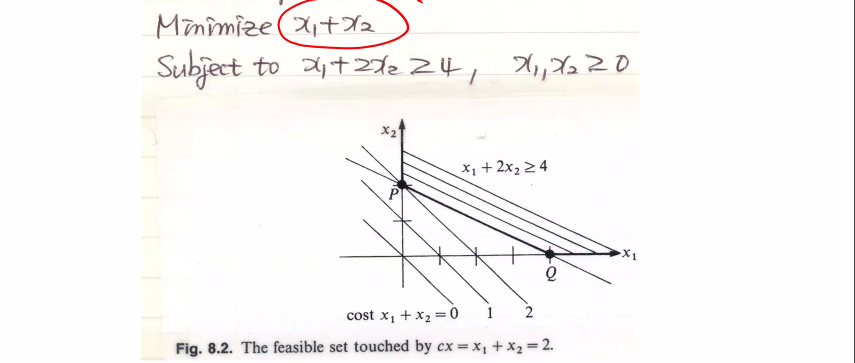 Minimize x₁+x₂
Subject to x₁+2x₂ ≥ 4, x₁,x₂ ≥ 0
x₂
x₁ + 2x₂ ≥ 4
P
x₁
Q
cost x₁ + x₂ = 0 1 2
Fig. 8.2. The feasible set touched by cx = x₁ + x₂ = 2.